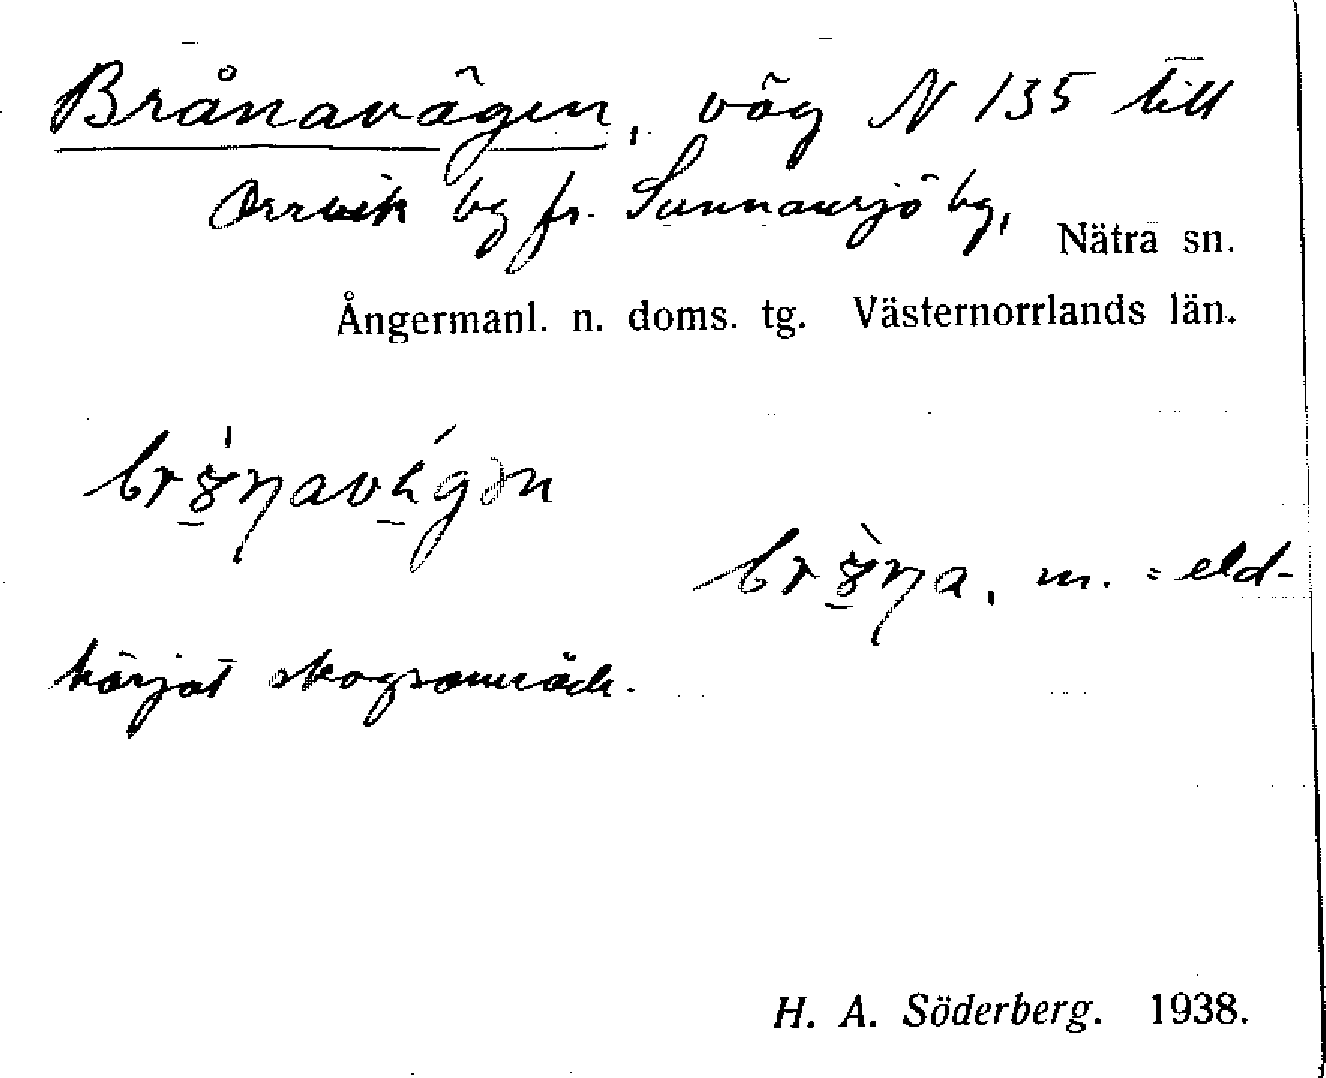 Brånavägen, väg N 135 till
Orrvik bg fr. Sunnansjö bg,
Nätra sn.
Ångermanl. n. doms. tg. Västernorrlands län.
m. = eld-
härjat skogsområde.
H. A. Söderberg. 1938.